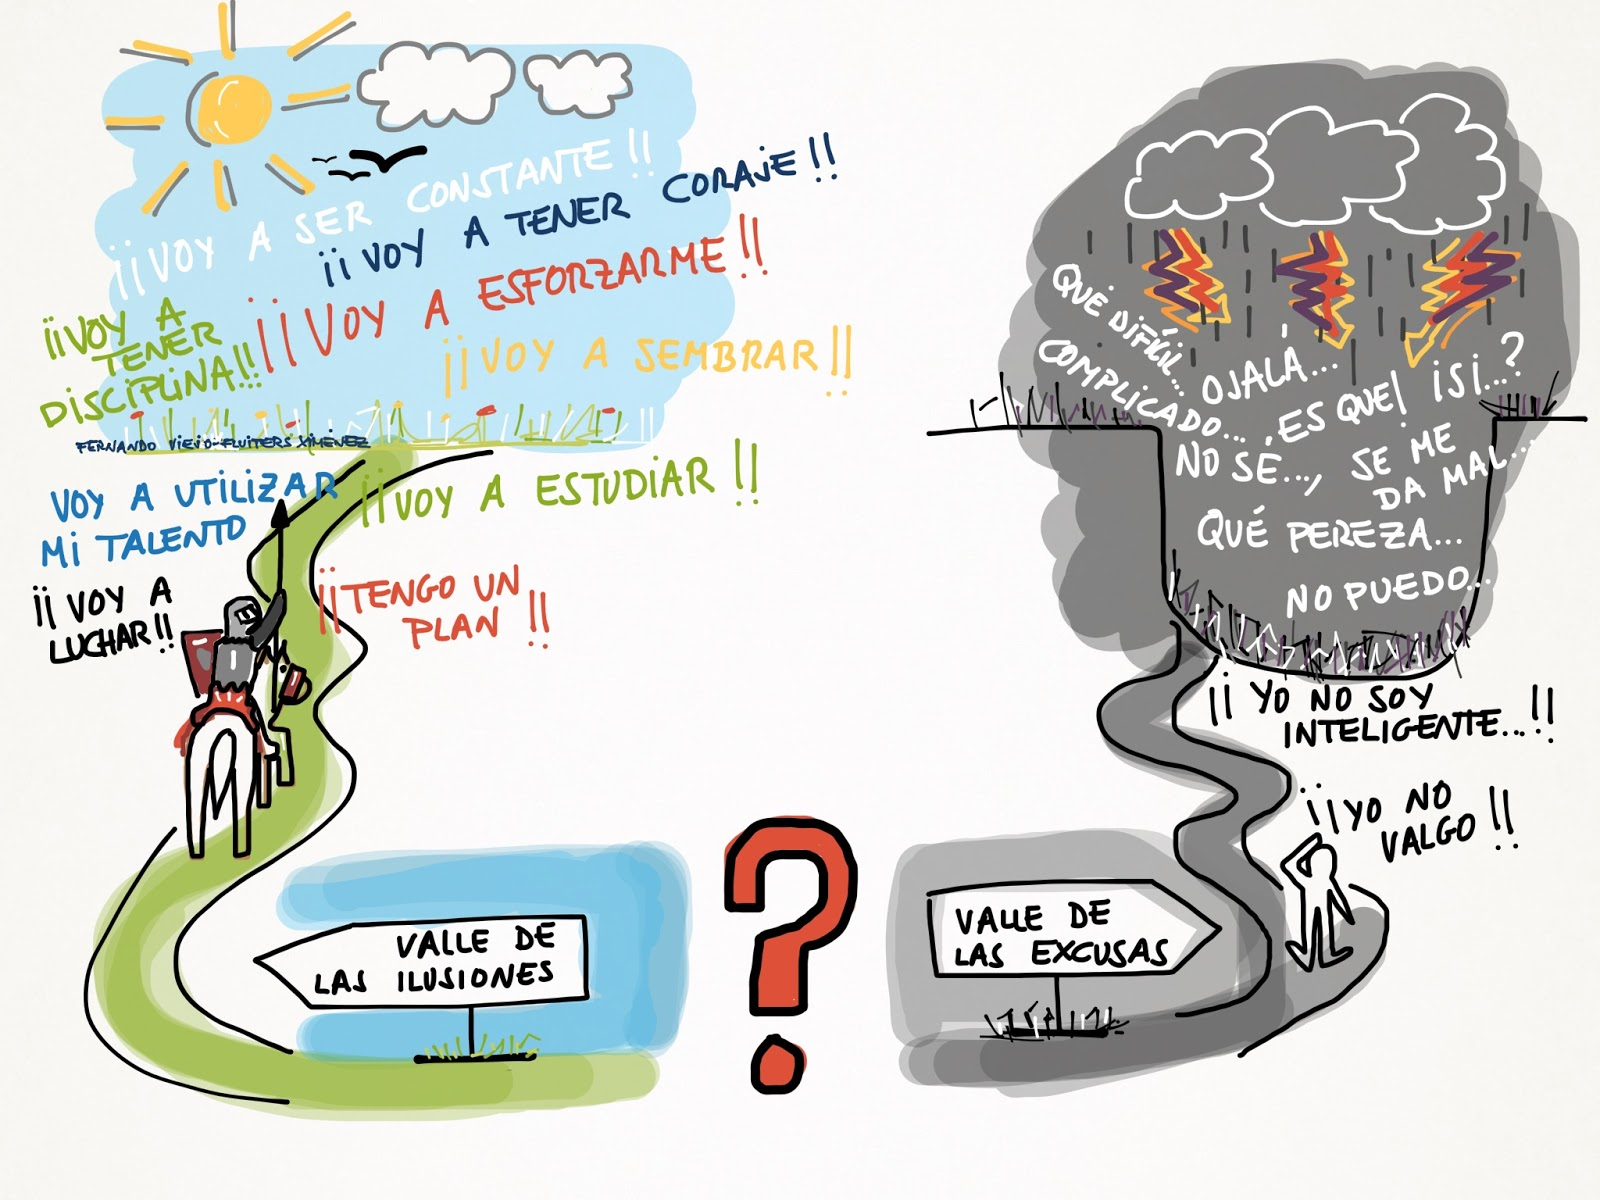 ¡¡VOY A SER CONSTANTE!!
¡¡VOY A TENER CORAJE!!
¡¡VOY A ESFORZARME!!
¡¡VOY A
TENER
DISCIPLINA!!
¡¡VOY A SEMBRAR!!
FERNANDO VIEJO-FLUITERS XIMÉNEZ
VOY A UTILIZAR
MI TALENTO
¡¡VOY A ESTUDIAR!!
¡¡VOY A
LUCHAR!!
¡¡TENGO UN
PLAN!!
VALLE DE
LAS ILUSIONES
?
QUÉ DIFÍCIL...
COMPLICADO...
OJALÁ...
ES QUE!
¡SI...?
NO SÉ...,
SE ME
DA MAL...
QUÉ PEREZA...
NO PUEDO...
¡¡YO NO SOY
INTELIGENTE...!!
¡¡YO NO
VALGO!!
VALLE DE
LAS EXCUSAS